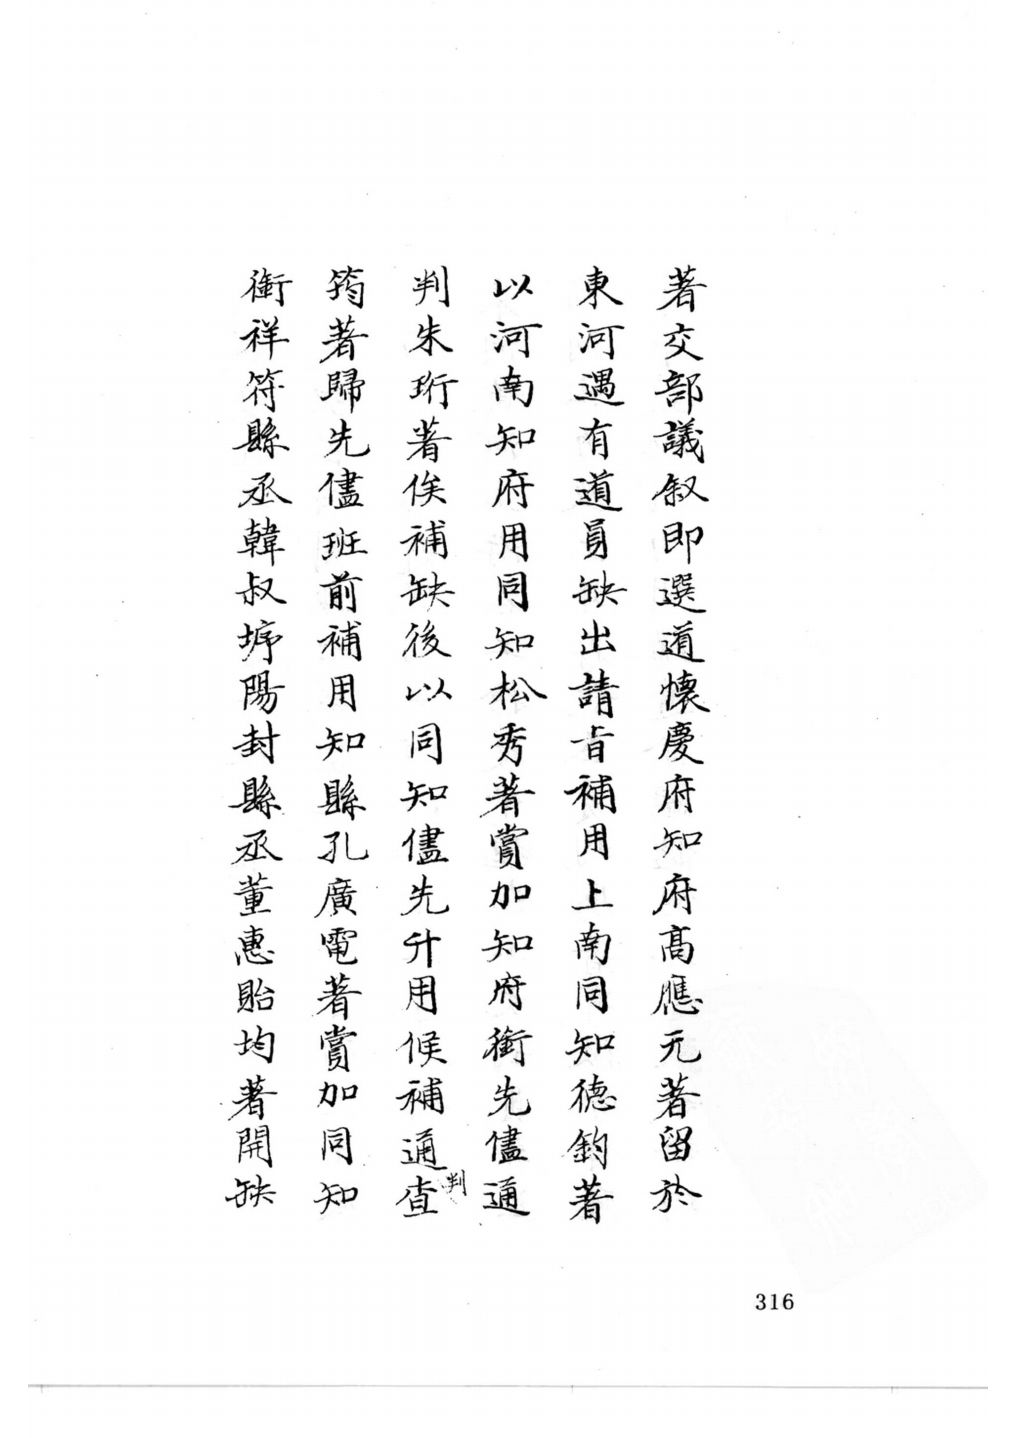 著交部議叙即選道懷慶府知府高應元著留於
東河遇有道員缺出請旨補用上南同知德鈞著
以河南知府用同知松秀著賞加知府銜先儘通
判朱珩著俟補缺後以同知儘先升用候補通判查
筠著歸先儘班前補用知縣孔廣電著賞加同知
銜祥符縣丞韓叔㙐陽封縣丞董惠貽均著開缺
316